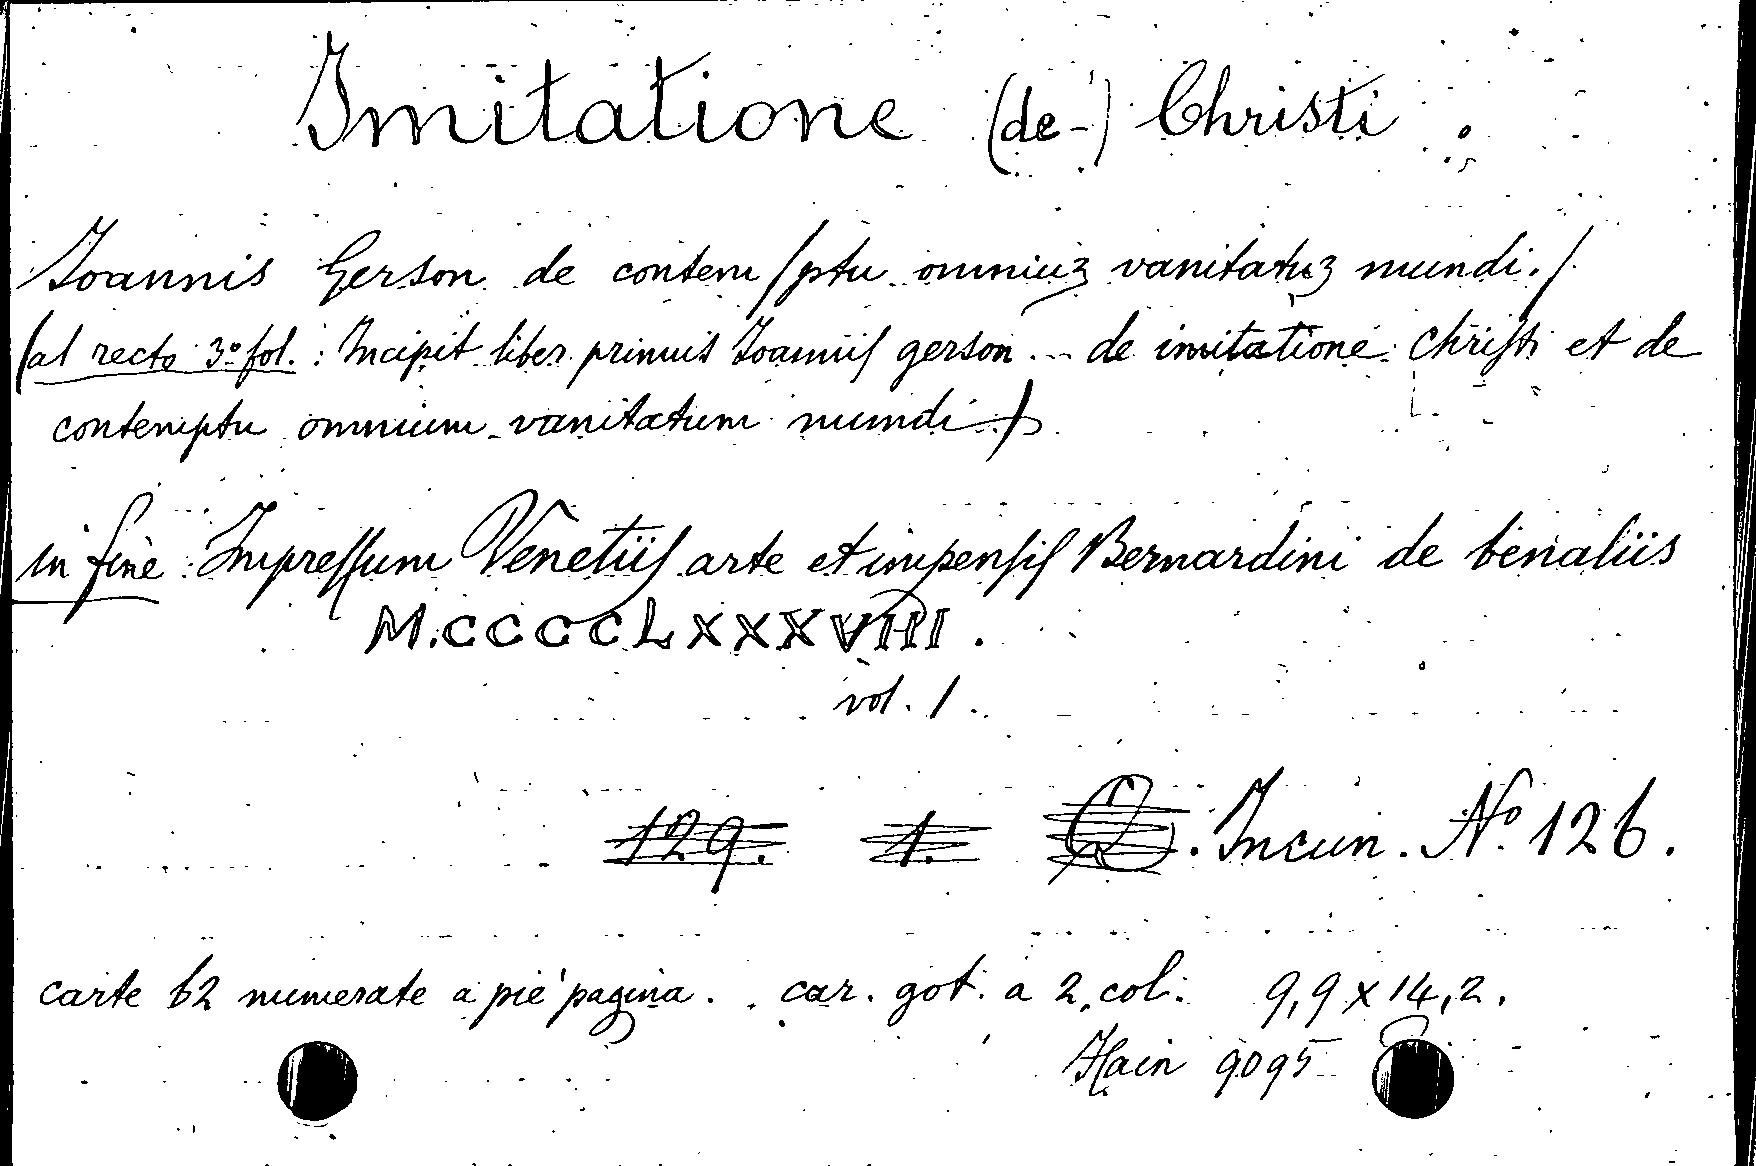 Imitatione (de-) Christi.
Joannis Gerson de contem/ptu omniuz vanitatuz mundi./
(al recto 3º fol.: Incipit liber primus Joannis gerson... de imitatione Christi et de
contemptu omnium vanitatum mundi)
in fine: Impressum Venetiis arte et impensis Bernardini de benaliis
M.CCCCLXXXVIII.
vol. 1.
129. 1. Q. Incun. Nº 126.
carte 62 numerate a piè pagina. car. got. a 2 col. 9,9 x 14,2.
Hain 9095